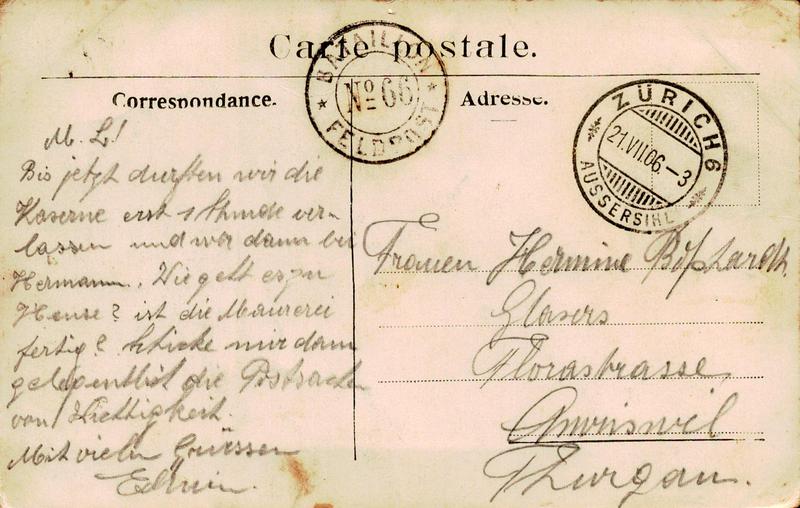 Carte postale.
Correspondance.
Adresse.
BATAILLON
No 66
FELDPOST
ZÜRICH 6
21.VII.06.-3
AUSSERSIHL
M. L!
Bis jetzt durften wir die
Kaserne erst 1 Stunde ver-
lassen und war dann bei
Hermann. Wie geht es zu
Hause? ist die Maurerei
fertig? Schicke mir dann
gelegentlich die Postsachen
von Wichtigkeit.
Mit vielen Grüssen
Edwin.
Frauen Hermine Boßhardt
Glasers
Florastrasse
Amriswil
Thurgau.